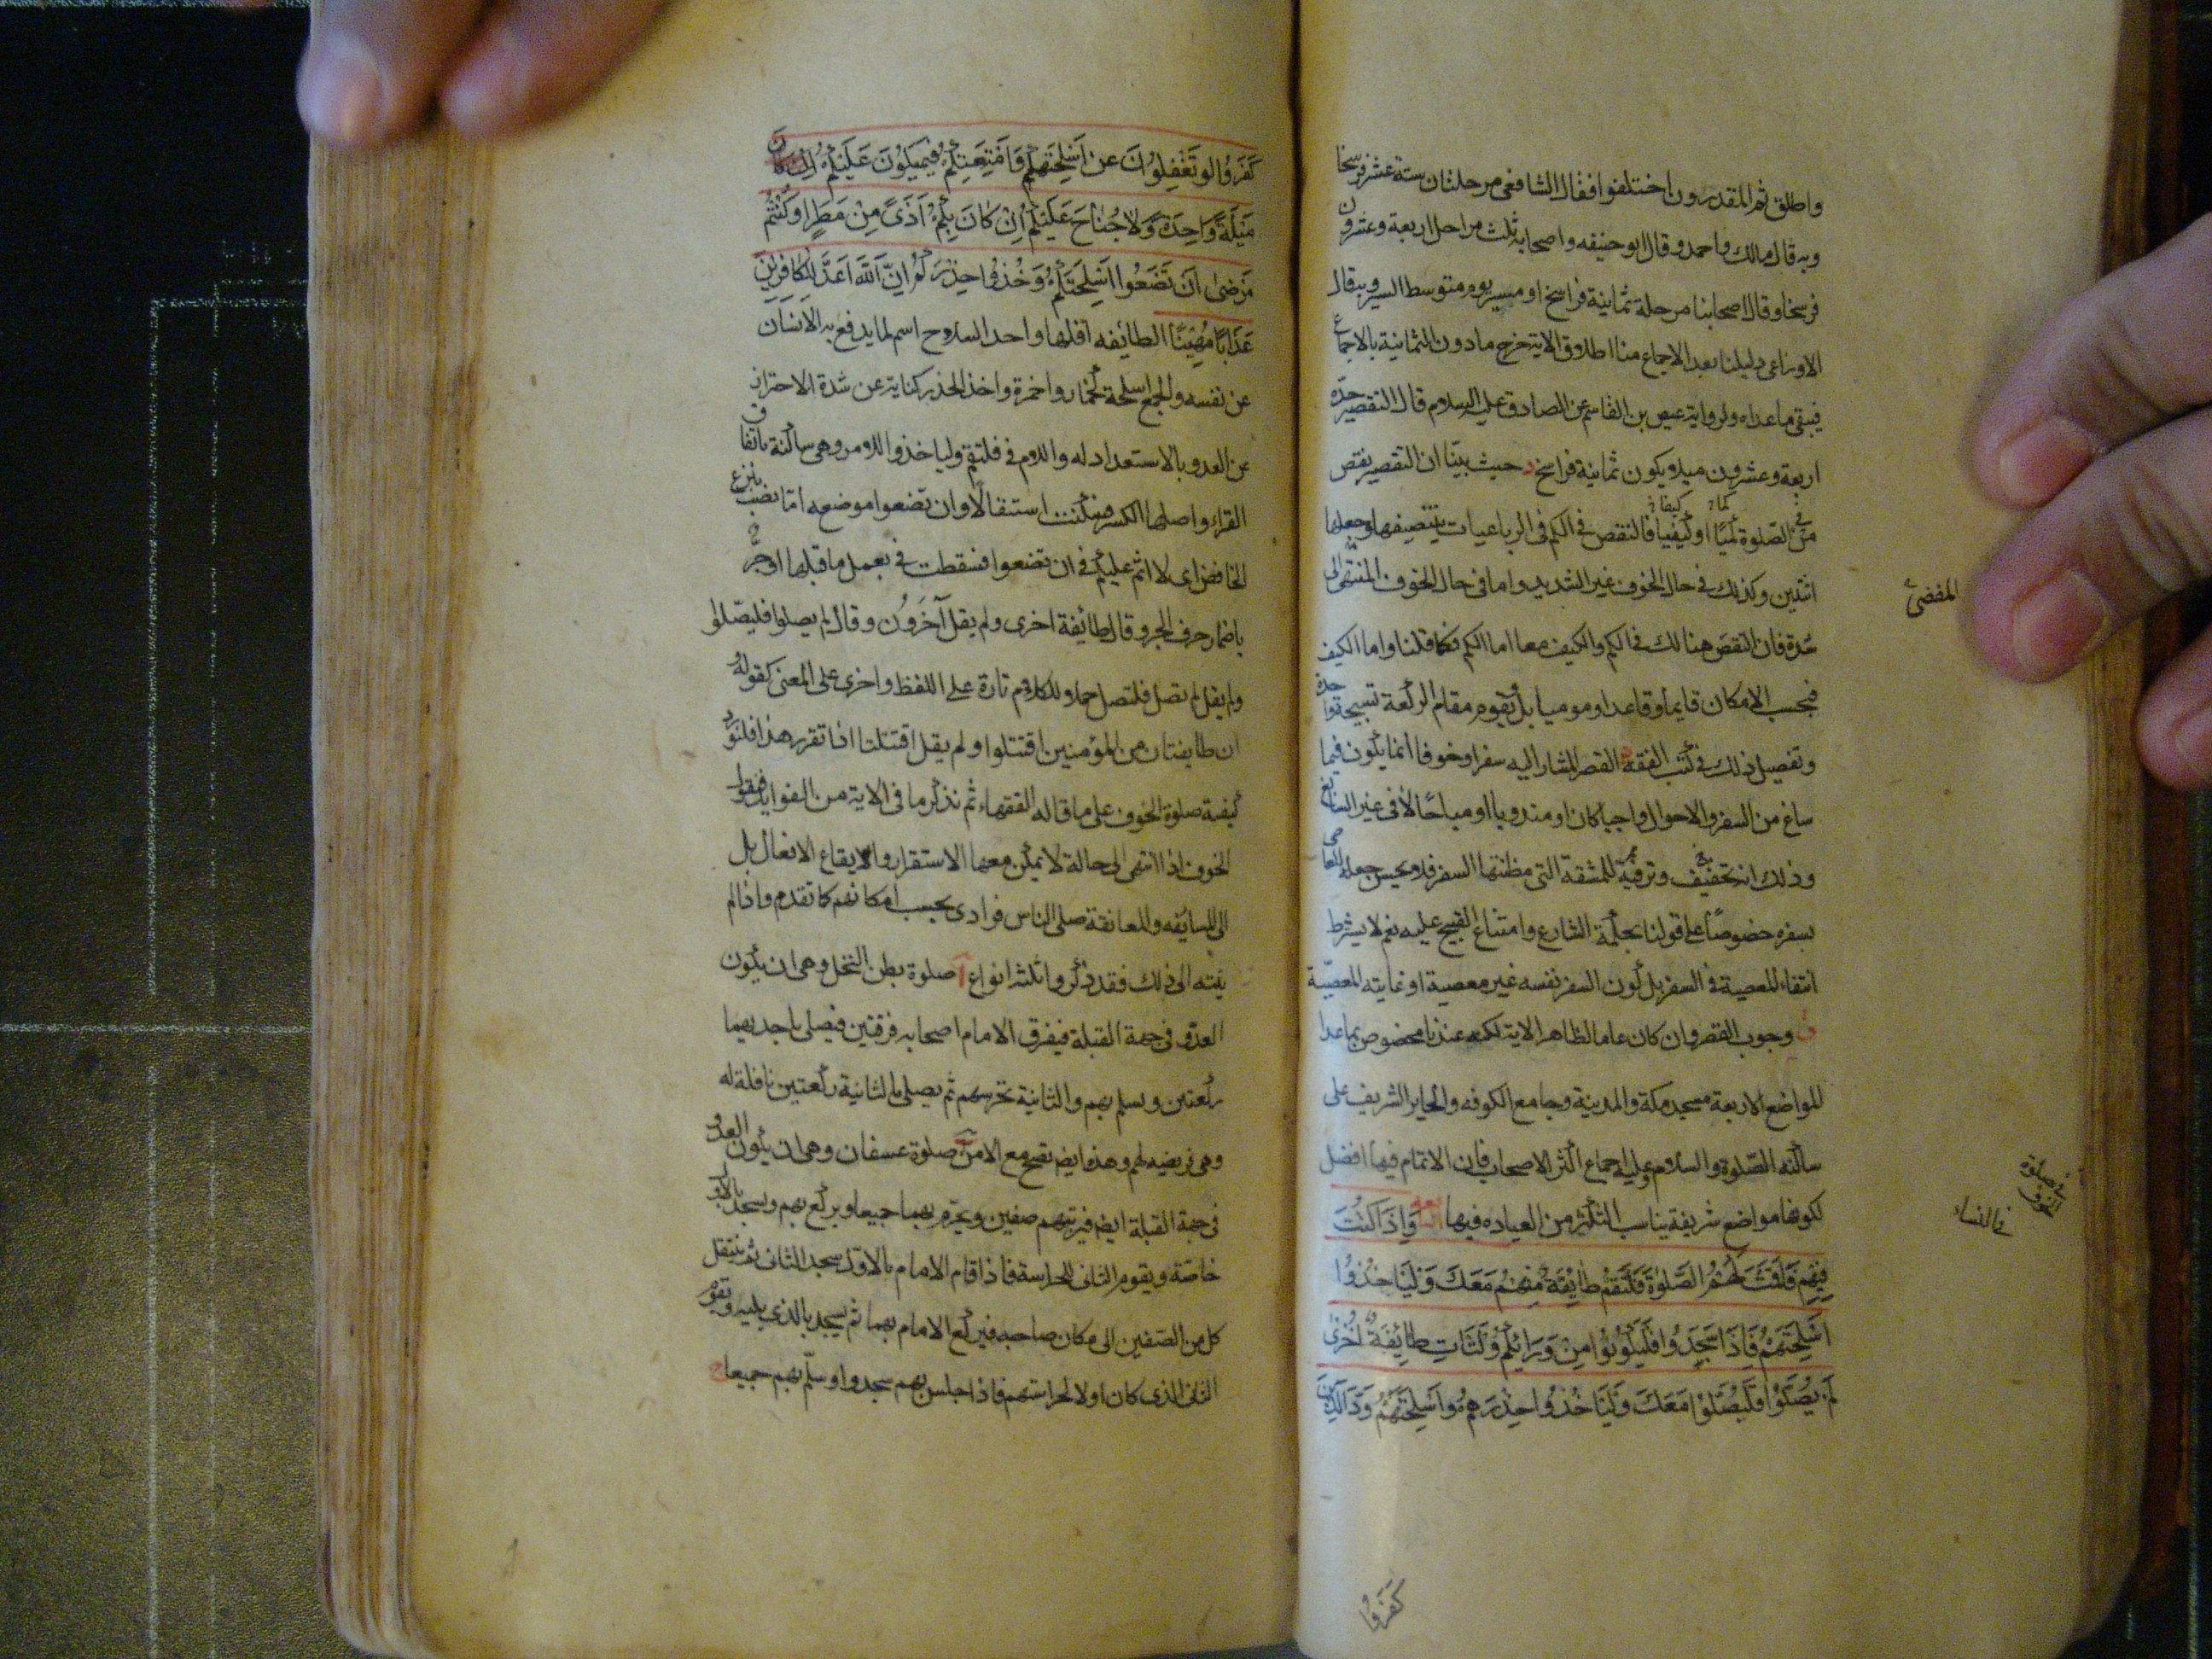 واطلق ثم المقدرون اختلفوا فقال الشافعي مرحلتان ستة عشر فرسخا
وبه قال مالك واحمد وقال ابو حنيفه واصحابه ثلث مراحل اربعة وعشرون
فرسخا وقال اصحابنا مرحلة ثمانية فراسخ او مسير يوم متوسط السير وبه قال
الاوزاعي دليلنا بعد الاجماع منا اطلاق الاية خرج ما دون الثمانية بالاجماع
فيبقى ما عداه ولرواية عيص بن القاسم عن الصادق عليه السلام قال التقصير حدّه
اربعة وعشرون ميلا ويكون ثمانية فراسخ د حيث بيّنا ان التقصير نقص
في الصّلوة كميّا او كيفيا فالنقص في الكم في الرباعيات بتنصيفها وجعلها
كما؟ كيفا؟
اثنتين وكذلك في حال الخوف غير الشديد واما في حال الخوف المنتهى الى
المفضي
شدة فان النقص هنالك في الكم والكيف معا اما الكم فكما قلنا واما الكيف
فبحسب الامكان قايما وقاعدا وموميا بل يقوم مقام الركعة تسبيحة واحدة
وتفصيل ذلك في كتب الفقه القصر المشار اليه سفرا وخوفا انما يكون فيما
ساغ من السفر والاحوال واجبا كان او مندوبا او مباحًا لا في غير السايغ
وذلك انه تخفيف وترفيه للمشقة التي مظنتها السفر فلا يحسن جعله للعاصي
بسفره خصوصًا على قولنا بحكمة الشارع وامتناع القبيح عليه نعم لا يشرط
انتفاء المعصية في السفر بل كون السفر نفسه غير معصية او غايته المعصيّة
و وجوب القصر وان كان عاما لظاهر الاية لكنه عندنا مخصوص بما عدا
المواضع الاربعة مسجد مكة والمدينة وجامع الكوفه والحاير الشريف على
ساكنه الصّلوة والسلام وعليه اجماع اكثر الاصحاب فان الاتمام فيها افضل
لكونها مواضع شريفة يناسب التكثر من العباده فيها وَاِذَا كُنْتَ
صلوة الخوف
في النساء
فِيهِمْ فَاَقَمْتَ لَهُمُ الصَّلوٰةَ فَلْتَقُمْ طَائِفَةٌ مِنْهُمْ مَعَكَ وَلْيَاْخُذُوا
اَسْلِحَتَهُمْ فَاِذَا سَجَدُوا فَلْيَكُونُوا مِنْ وَرَائِكُمْ وَلْتَاتِ طَائِفَةٌ اُخْرىٰ
لَمْ يُصَلُّوا فَلْيُصَلُّوا مَعَكَ وَلْيَاخُذُوا حِذْرَهُمْ وَاَسْلِحَتَهُمْ وَدَّ الَّذِينَ
كَفَرُوا
كَفَرُوا لَوْ تَغْفُلُونَ عَنْ اَسْلِحَتِكُمْ وَاَمْتِعَتِكُمْ فَيَمِيلُونَ عَلَيْكُمْ
مَيْلَةً وَاحِدَةً وَلَا جُنَاحَ عَلَيْكُمْ اِنْ كَانَ بِكُمْ اَذًى مِنْ مَطَرٍ اَوْ كُنْتُمْ
مَرْضىٰ اَنْ تَضَعُوا اَسْلِحَتَكُمْ وَخُذُوا حِذْرَكُمْ اِنَّ اللّٰهَ اَعَدَّ لِلْكَافِرِينَ
عَذَابًا مُهِينًا الطائفه اقلها واحد السلاح اسم لما يدفع به الانسان
عن نفسه والجمع اسلحة كخمار واخمرة واخذ الحذر كناية عن شدة الاحتراز
عن العدو بالاستعداد له واللام في فلتقم وليا خذوا للامر وهي ساكنة باتفاق
القراء واصلها الكسر فسكنت استثقالا وان تضعوا موضعه امّا نصب بنزع
الخافض اي لا اثم عليكم في ان تضعوا فسقطت في فعمل ما قبلها او جرّ
باضمار حرف الجر وقال طائفة اخرى ولم يقل آخَرُون وقال لم يصلوا فليصّلوا
ولم يقل لم تصل فلتصل حملا للكلام تارة على اللفظ واخرى على المعنى كقوله و
ان طايفتان من المؤمنين اقتتلوا ولم يقل اقتتلتا اذا تقرر هذا فلنورد
كيفية صلوة الخوف على ما قاله الفقهاء ثم نذكر ما في الاية من الفوايد فنقول
الخوف اذا انتهى الى حالة لا يمكن معها الاستقرار ولا ايقاع الافعال بل
الى المسايفه والمعانقة صلى الناس فرادى بحسب امكانهم كما تقدم واذا لم
ينته الى ذلك فقد ذكروا ثلثه انواع ا صلوة بطن النخل وهي ان يكون
العدو في جهة القبلة فيفرق الامام اصحابه فرقتين فيصلى باحديهما
ركعتين ويسلم بهم والثانية تحرسهم ثم يصلى بالثانية ركعتين نافلة له
وهي فريضه لهم وهذه ايضا تصح مع الامن ب صلوة عسفان وهي ان يكون العدو
في جهة القبلة ايضا فيرتبهم صفين ويحرم بهما جميعا ويركع بهم ويسجد بالاول
خاصّة ويقوم الثاني للحراسة فاذا قام الامام بالاول سجد الثاني ثم ينتقل
كل من الصّفين الى مكان صاحبه فيركع الامام بهما ثم يسجد بالذي يليه ويقوم
الثاني الذي كان اولا لحراستهم فاذا جلس بهم سجدوا وسلّم بهم جميعا ج